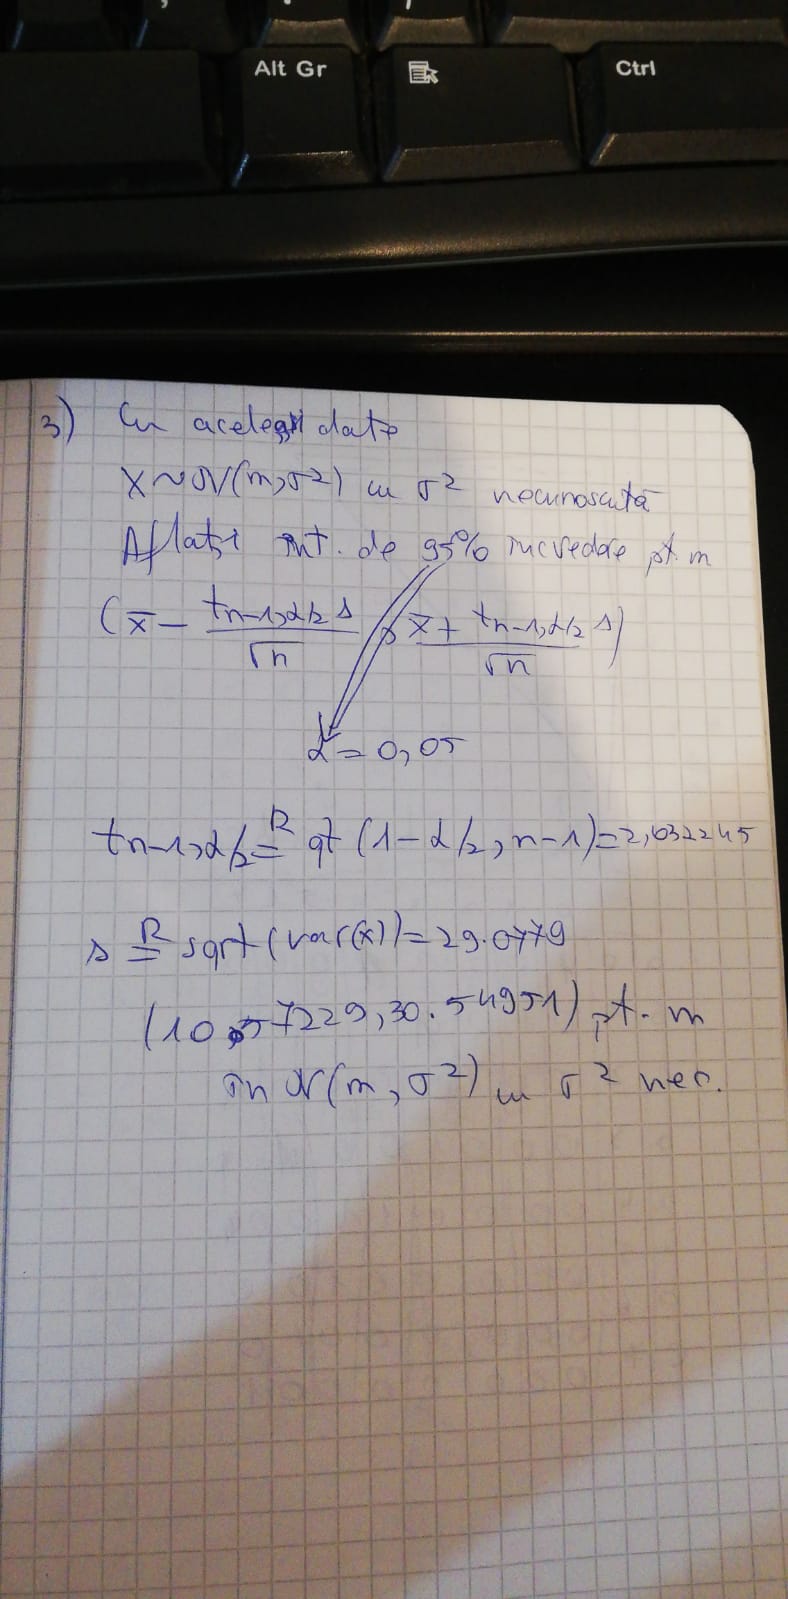 Alt Gr
Ctrl
3) Cu aceleași date
X~N(m,σ²) cu σ² necunoscută
Aflați int. de 95% încredere pt. m
(x̄ - tn-1,α/2 s/√n, x̄ + tn-1,α/2 s/√n)
α=0,05
tn-1,α/2 =ᴿ qt (1-α/2, n-1)=2,032245
s =ᴿ sqrt(var(x))=29.0779
(10.57229,30.54951) pt. m
în N(m,σ²) cu σ² nec.